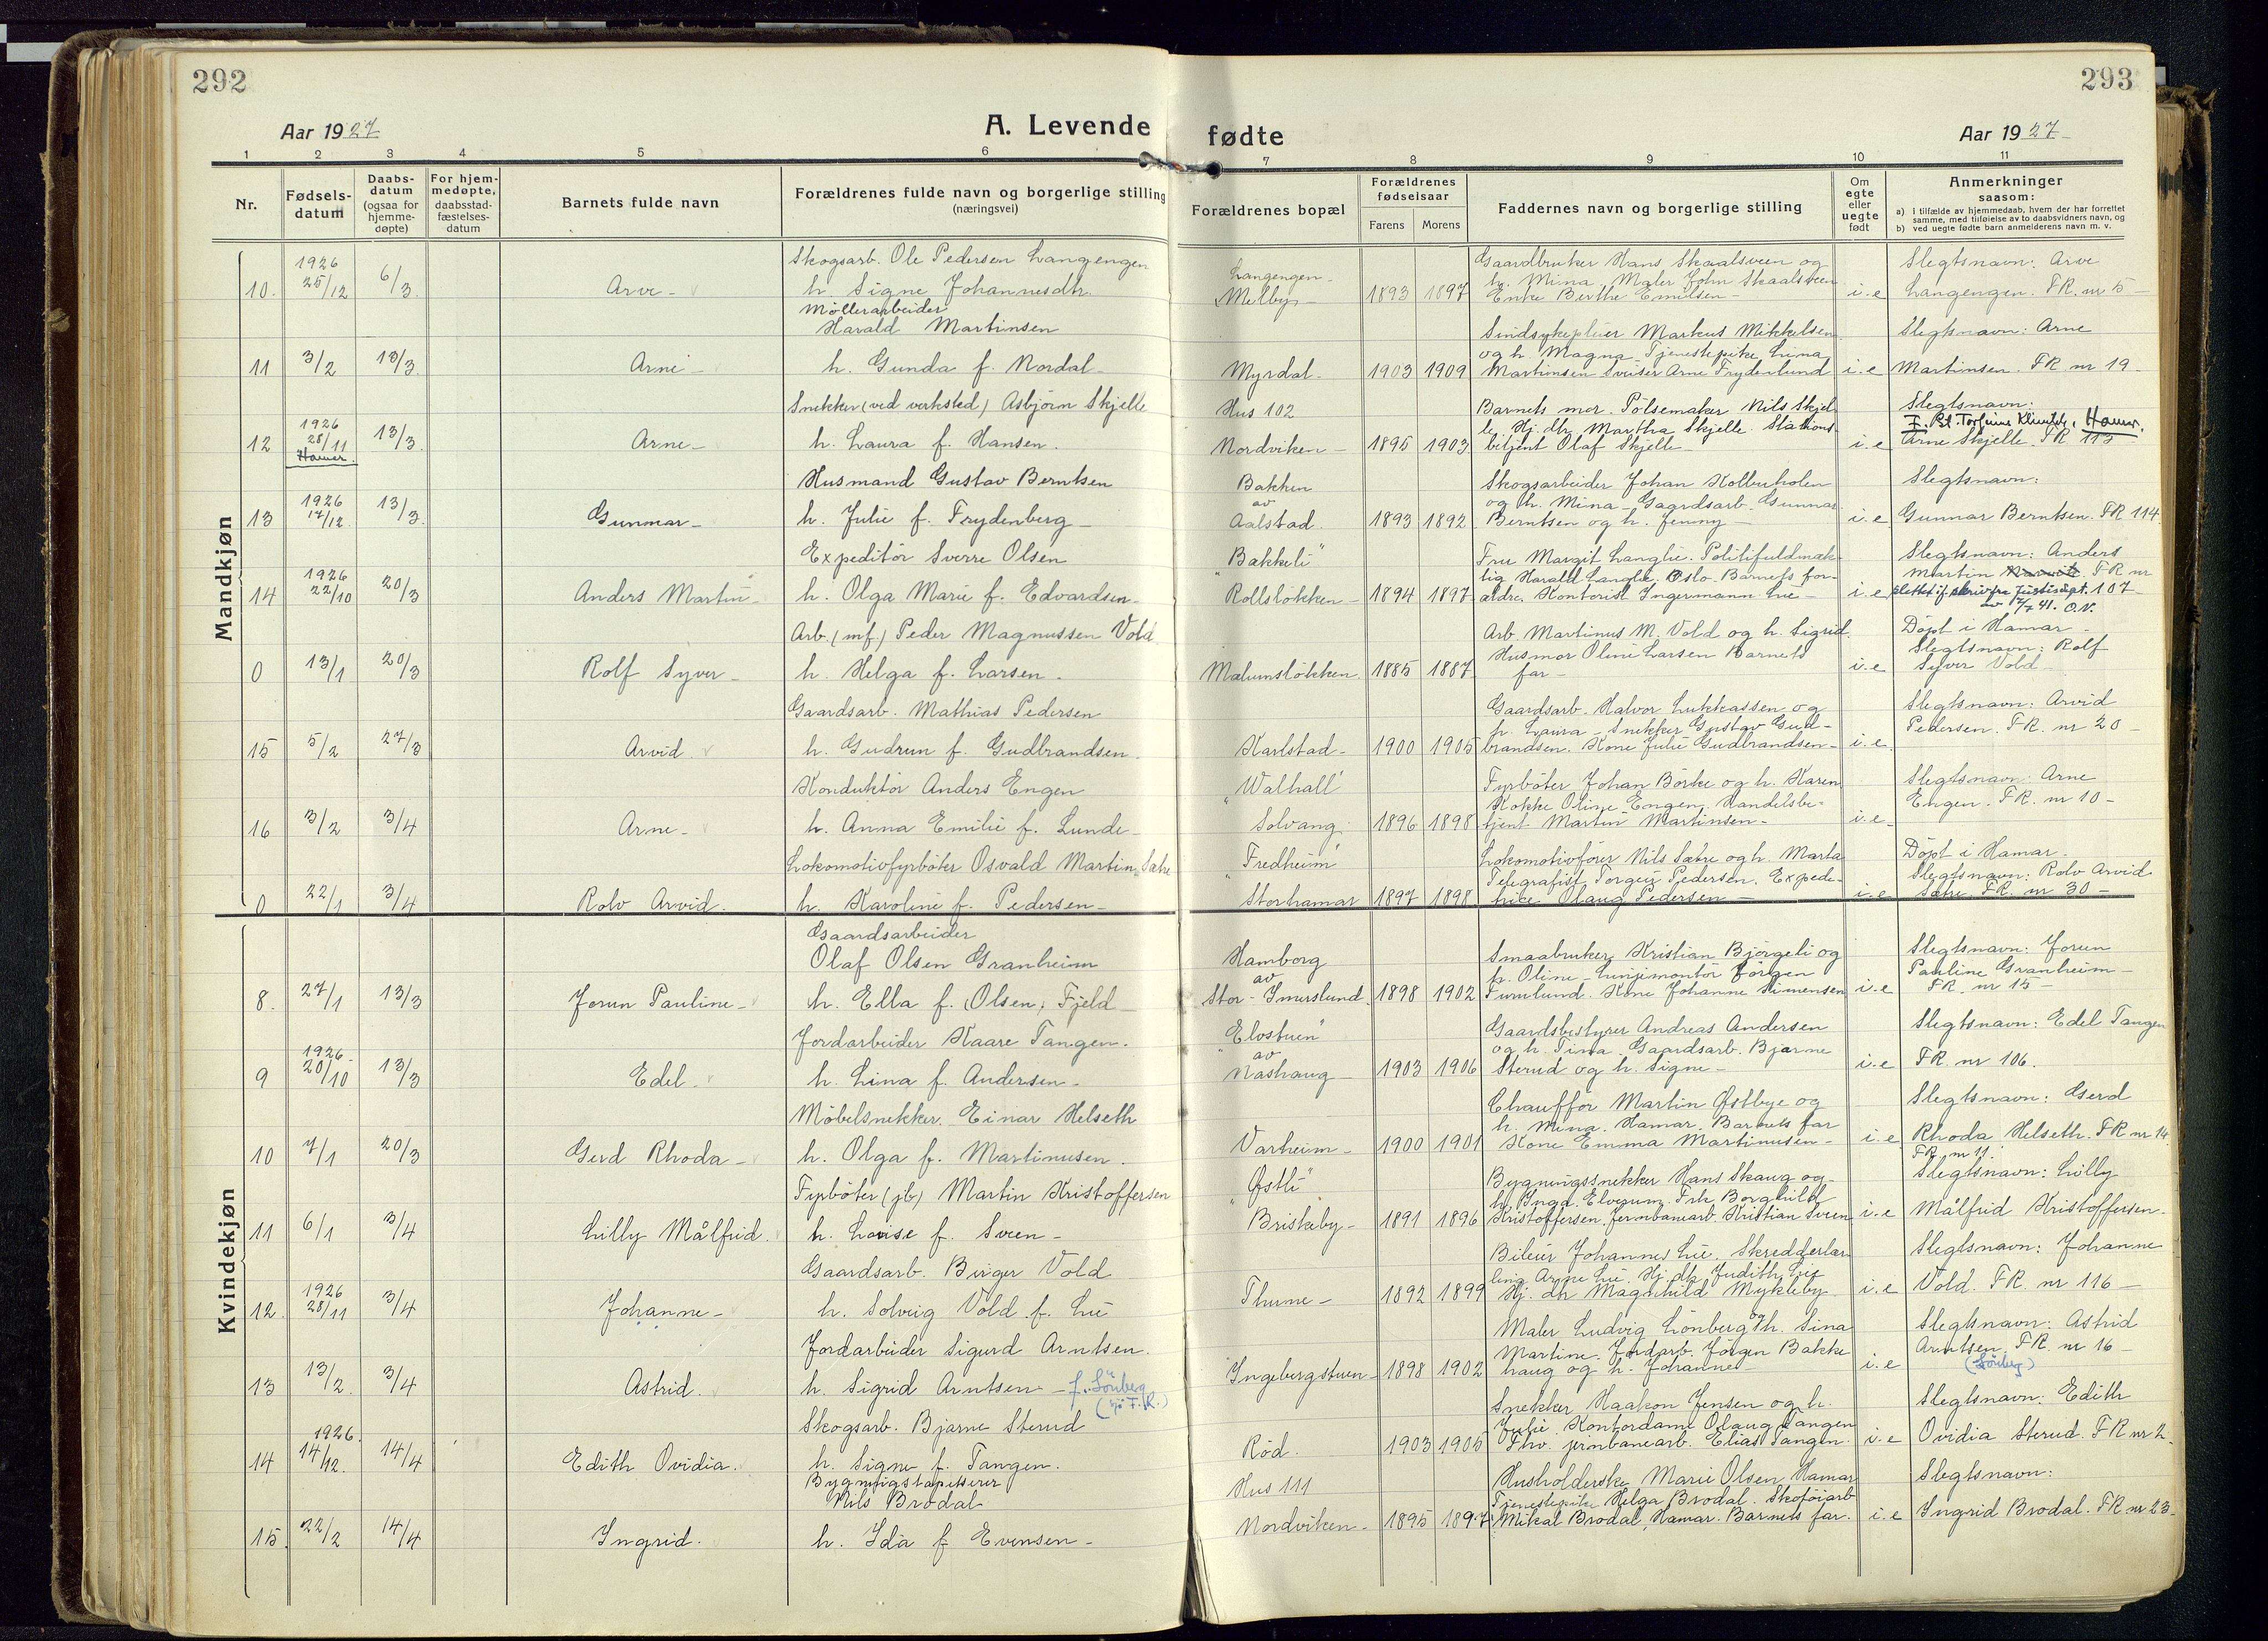 292
293
Aar 1927
A. Levende
fødte
Aar 1927
1 2 3 4 5 6 7 8 9 10 11
Nr.
Fødsels-
datum
Daabs-
datum
(ogsaa for
hjemme-
døpte)
For hjem-
medøpte,
daabsstad-
fæstelses-
datum
Barnets fulde navn
Forældrenes fulde navn og borgerlige stilling
(næringsvei)
Forældrenes bopæl
Forældrenes
fødselsaar
Farens Morens
Faddernes navn og borgerlige stilling
Om
egte
eller
uegte
født
Anmerkninger
saasom:
a) i tilfælde av hjemmedaab, hvem der har forrettet
samme, med tilføielse av to daabsvidners navn, og
b) ved uegte fødte barn anmelderens navn m. v.
Mandkjøn
10. 1926 25/12 6/3 Arve
Skogsarb. Ole Pedersen Langengen
h. Signe Johannesdtr.
Langengen
Melby 1893 1897
Gaardbruker Hans Skaalsveen og
h. Mina, Maler John Skaalsveen
Enke Berthe Emilsen i.e
Slegtsnavn: Arve
Langengen. FR. nr 5
11 3/2 13/3 Arne
Møllerarbeider
Harald Martinsen
h. Gunda f. Nordal
Myrdal 1903 1909
Sindsykepleier Markus Mikkelsen
og h. Magna Tjenestepike Lina
Martinsen Sveiser Arne Frydenlund i.e
Slegtsnavn: Arne
Martinsen. FR nr 19
12 1926 28/11 Hamar. 13/3 Arne
Snekker (ved verksted) Asbjørn Skjelle
h. Laura f. Hansen.
Hus 102
Nordviken 1895 1903
Barnets mor. Pølsemaker Nils Skjel
le. Hj. dtr Martha Skjelle. Stations
betjent Olaf Skjelle i.e
Slegtsnavn:
Hamar.
Arne Skjelle. FR 113
13 1926 17/12. 13/3. Gunnar
Husmand Gustav Berntsen
h. Julie f. Frydenberg
Bakken
av
Aalstad. 1893 1892
Skogsarbeider Johan Kolberholen
og h. Mina Gaardsarb. Gunnar
Berntsen og h. Jenny i.e
Slegtsnavn:
Gunnar Berntsen. FR 114.
14 1926 22/10 20/3 Anders Martin
Expeditør Sverre Olsen
h. Olga Marie f. Edvardsen
"Bakkeli"
Rolsløkken 1894 1897
Fru Margit Langlie. Politifuldmæk-
tig Harald Langlie. Oslo. Barnets for-
ældre. Kontorist Ingermann Lie i.e
Slegtsnavn: Anders
Martin FR nr
slettet if. skriv fra Justisdept. 107
av 7/7 41. O.N.
0 13/1 20/3 Rolf Syver
Arb. (mf.) Peder Magnussen Vold
h. Helga f. Larsen.
Mælumsløkken 1885 1887
Arb. Martinus M. Vold og h. Sigrid.
Husmor Oline Larsen Barnets
far i.e
Døpt i Hamar
Slegtsnavn: Rolf
Syver Vold
15 5/2 27/3 Arvid.
Gaardsarb. Mathias Pedersen
h. Gudrun f. Gudbrandsen.
Karlstad 1900 1905
Gaardsarb. Halvor Lukkassen og
h. Laura Snekker Gustav Gud-
brandsen. Kone Julie Gudbrandsen i.e.
Slegtsnavn: Arvid
Pedersen. FR. nr 20
16 3/2 3/4 Arne
Konduktør Anders Engen
h. Anna Emilie f. Lunde
"Walhall"
Solvang. 1896 1898
Fyrbøter Johan Børke og h. Karen
Kokke Oline Engen. Handelsbe-
tjent Martin Martinsen i.e
Slegtsnavn: Arne
Engen. FR. nr 10
0 22/1 3/4 Rolv Arvid.
Lokomotivfyrbøter Osvald Martin Sætre
h. Karoline f. Pedersen
"Fredheim"
Storhamar 1897 1898
Lokomotivfører Nils Sætre og h. Marta
Telegrafist Torgeir Pedersen. Expedi-
trice Olaug Pedersen i.e
Døpt i Hamar.
Slegtsnavn: Rolv Arvid
Sætre. FR. nr 30
Kvindekjøn
8. 27/1 13/3 Jorun Pauline
Gaardsarbeider
Olaf Olsen Granheim
h. Ella f. Olsen, Fjeld
Hamborg
av
Stor-Smerslund. 1898 1902
Smaabruker Kristian Bjørgeli og
h. Oline Linjemontør Jørgen
Furulund. Kone Johanne Simensen i.e
Slegtsnavn: Jorun
Pauline Granheim
FR. nr 15
9 1926 20/10 13/3 Edel
Jordarbeider Kaare Tangen.
h. Lina f. Andersen
"Elvstuen"
av
Nashaug 1903 1906
Gaardsbestyrer Andreas Andersen
og h. Tina. Gaardsarb. Bjarne
Sterud og h. Signe i.e
Slegtsnavn: Edel Tangen
FR. nr 106.
10 7/1 20/3 Gerd Rhoda
Møbelsnekker. Einar Helseth
h. Olga f. Martinusen.
Varheim 1900 1901
Chauffør Martin Østbye og
h. Mina. Hamar. Barnets far
Kone Emma Martinusen i.e
Slegtsnavn: Gerd
Rhoda Helseth. FR nr 14.
11 6/1 3/4 Lilly Målfrid.
Fyrbøter (jb) Martin Kristoffersen
h. Lovise f. Sveen
"Østli"
Briskeby 1891 1896
Bygningssnekker Hans Skaug og
h. Inga. Elverum. Frk. Borghild
Kristoffersen. Jernbanearb. Kristian Sveen i.e
FR. nr 11.
Slegtsnavn: Lilly
Målfrid Kristoffersen.
12. 1926 28/11 3/4 Johanne
Gaardsarb. Birger Vold
h. Solveig Vold f. Lie
Thune 1892 1899
Bileier Johannes Lie. Skredderlær
ling Arne Lie. Hj. dtr Judith Lie
Hj. dtr Magnhild Mykleby i.e
Slegtsnavn: Johanne
Vold. FR. nr 116
13 13/2. 3/4 Astrid.
Jordarbeider Sigurd Arntsen.
h. Sigrid Arntsen f. Lönberg
F.R.)
Ingebergstuen 1898 1902
Maler Ludvig Lönberg og h. Sina
Martine. Jordarb. Jørgen Bakke
haug og h. Johanne i.e
Slegtsnavn: Astrid
Arntsen. FR. nr 16
(Lönberg)
14 1926. 14/12. 14/4 Edith Ovidia.
Skogsarb. Bjarne Sterud
h. Signe f. Tangen.
Rød. 1903 1905
Snekker Haakon Jensen og h.
Julie. Kontordame Olaug Tangen
Fhv. jernbanearb. Elias Tangen. i.e
Slegtsnavn: Edith
Ovidia Sterud. FR nr 2.
15. 22/2 14/4 Ingrid.
Bygningstapetserer
Nils Brodal
h. Ida f Evensen
Hus 111
Nordviken 1895 1897
Husholderske Marie Olsen Hamar
Tjenestepike Helga Brodal. Skotøiarb
Mikal Brodal, Hamar. Barnets far. i.e
Slegtsnavn:
Ingrid Brodal. FR. nr 23.